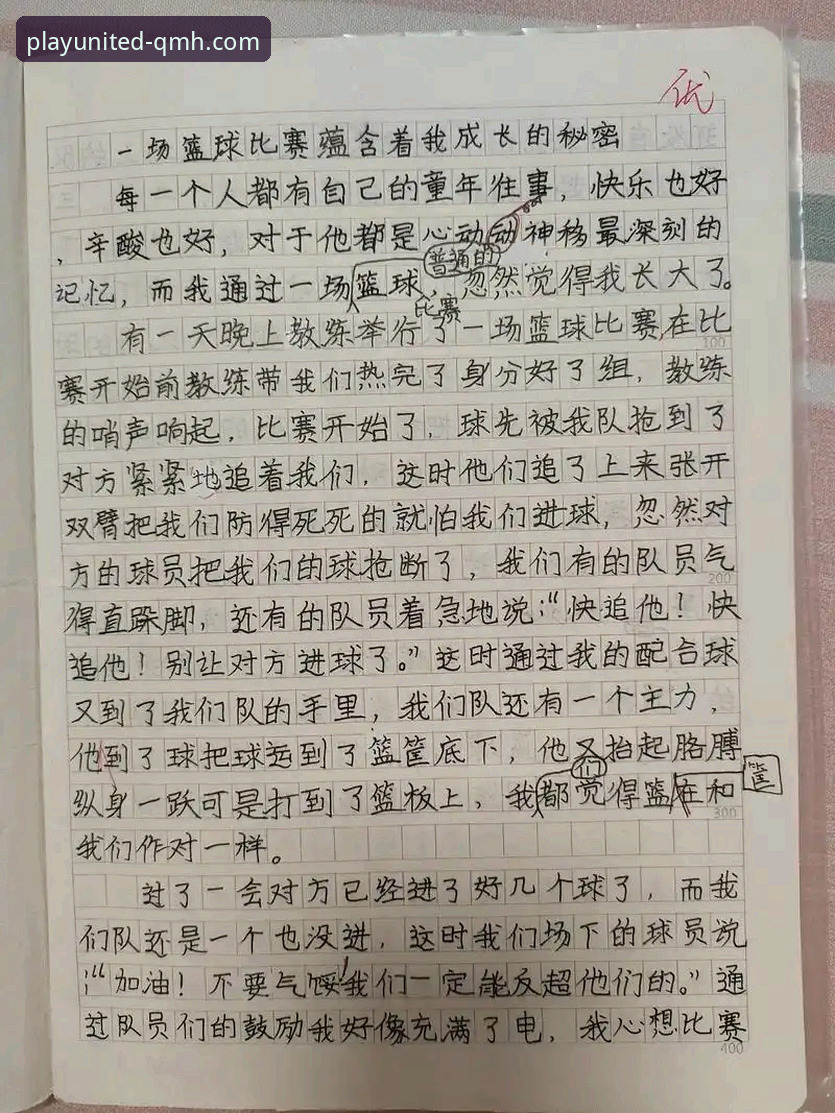 playunited-qmh.com
优
一场篮球比赛蕴含着我成长的秘密
每一个人都有自己的童年往事,快乐也好
,辛酸也好,对于他都是心动动神移最深刻的
普通的
记忆,而我通过一场篮球,忽然觉得我长大了。
比赛
有一天晚上教练举行了一场篮球比赛,在比
100
赛开始前教练带我们热完了身分好了组,教练
的哨声响起,比赛开始了,球先被我队抢到了
对方紧紧地追着我们,这时他们追了上来张开
双臂把我们防得死死的就怕我们进球,忽然对
方的球员把我们的球抢断了,我们有的队员气
200
得直跺脚,还有的队员着急地说:“快追他!快
追他!别让对方进球了。”这时通过我的配合球
又到了我们队的手里,我们队还有一个主力,
他到了球把球运到了篮筐底下,他又抬起胳膊
们
筐
纵身一跃可是打到了篮板上,我都觉得篮在和
300
我们作对一样。
过了一会对方已经进了好几个球了,而我
们队还是一个也没进,这时我们场下的球员说
:“加油!不要气馁!我们一定能反超他们的。”通
过队员们的鼓励我好像充满了电,我心想比赛
400